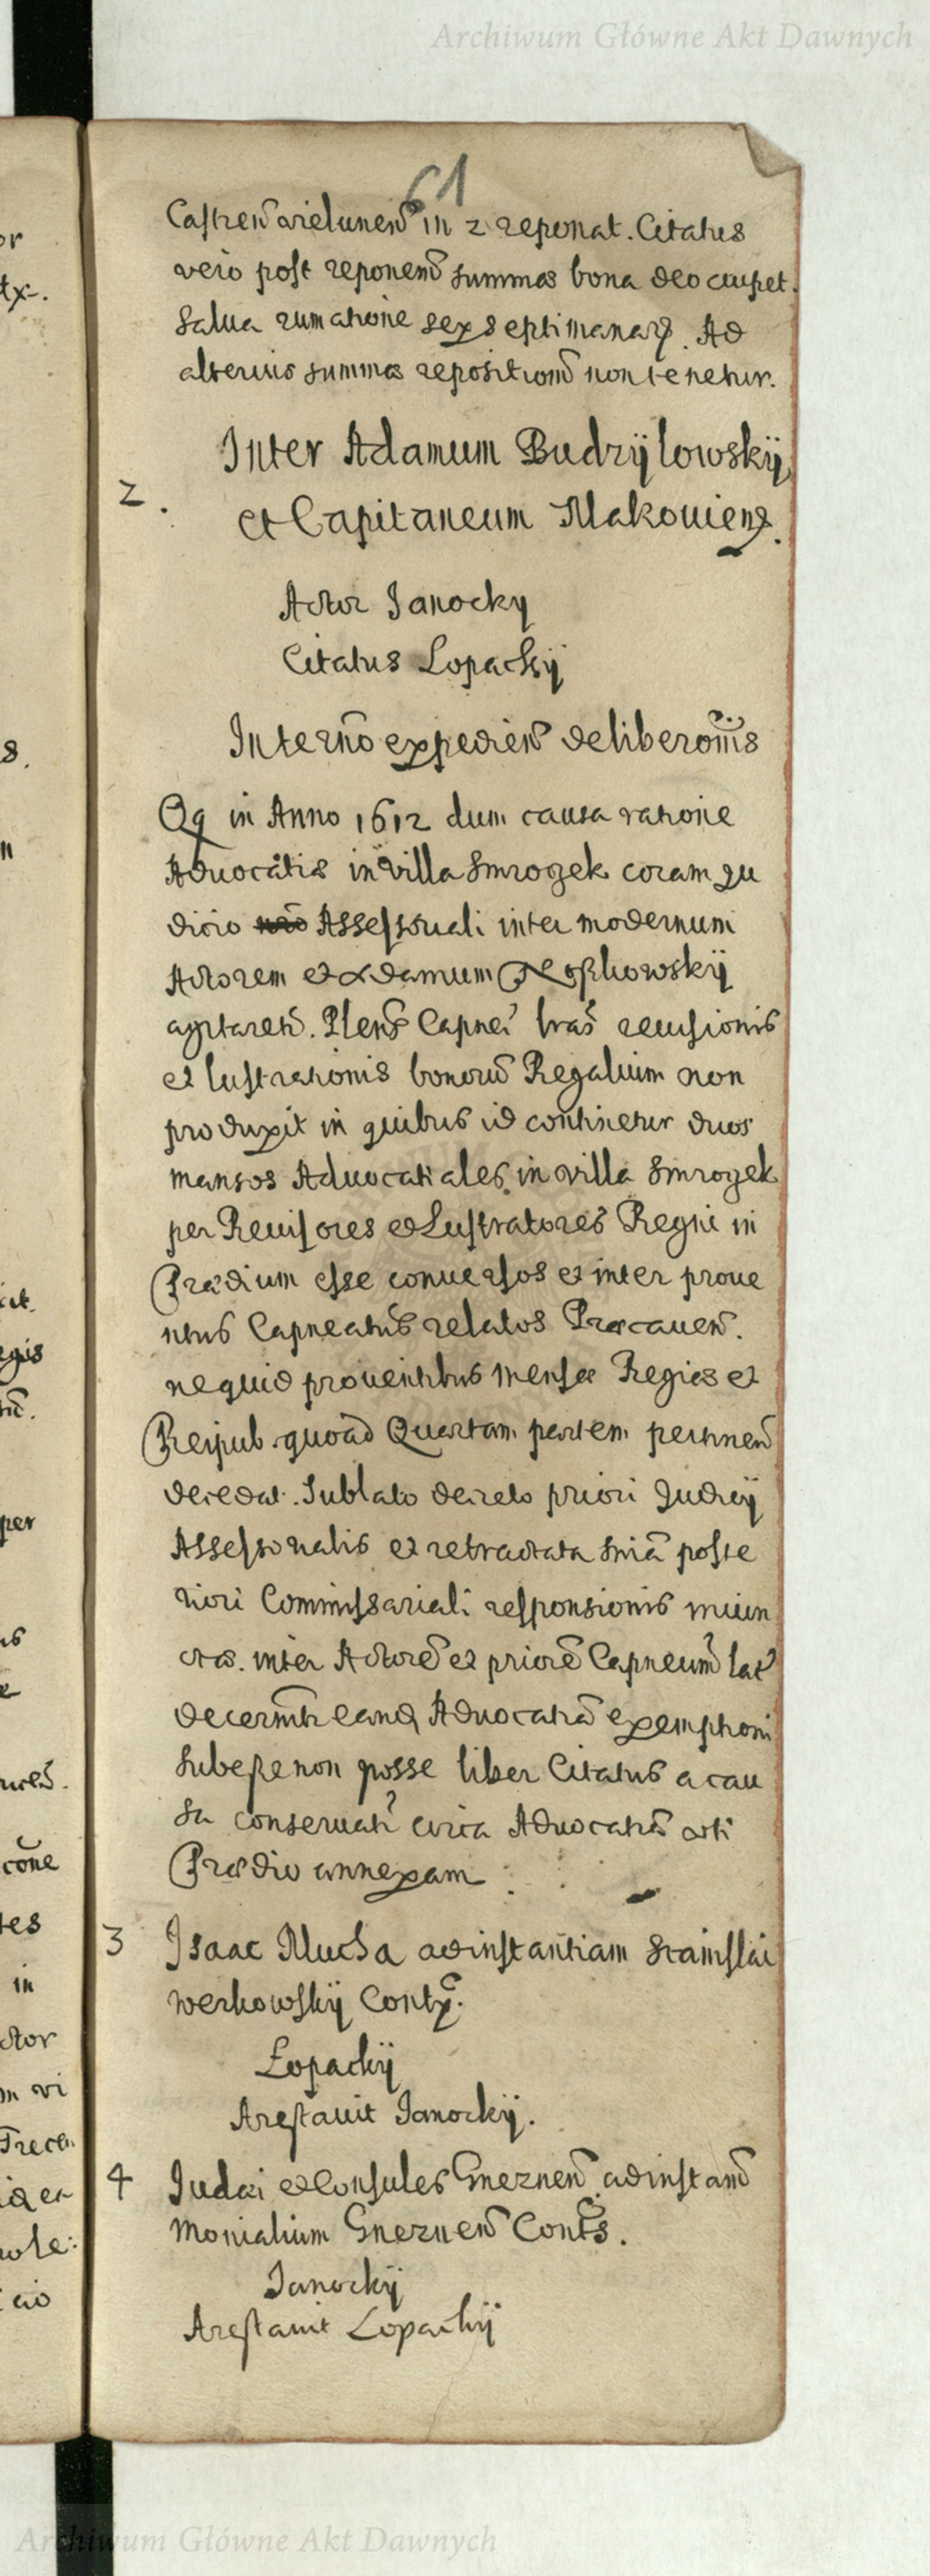 Archiwum Główne Akt Dawnych
61
Castren̄ wielunen̄ in 2 reponat. Citatus
vero post reponen̄ summas bona deoccupet.
Salua rumatione sex septimanarꝫ. Ad
alterius summas reposition̄ non tenetur.
2. Inter Adamum Budzÿlowskÿ
et Capitaneum Makouiens.
Actor Janocky
Citatus Lopackÿ
expedien̄ deliberoīs
Qq in Anno 1612 dum causa ratione
Aduocātis in villa Smrogek coram Ju
dicio Assessoriali inter modernum
Actorem et Adamum
agitaretr̄. Capneī lrās reuisionis
et lustrationis bonorū Regalium non
produxit in quibus id continetur duos
mansos Aduocatiales in villa Smrogek
per Reuisores et Lustratores Regni in
Prædium esse conuersos et inter proue
ntus Capneatus relatos Præcauen̄.
nequid prouentibus mensæ Regiæ et
Reipub. quoad Quartam partem pertinen̄
decedat. Sublato decreto priori Judicÿ
Assessorialis et retractata sn̄ia poste
riori Commissariali responsionis iniun
ctæ. inter Actorē et priorē Capneum̄ lat̄
decernit̄ eand̄ Aduocatiā exemptioni
subesse non posse liber Citatus a cau
sa conseruatr̄ circa Aduocatiā
Prædio annexam
3 Isaac Mucha ad instantiam Stanislai
werkowskÿ Contꝝ.
Łopackÿ
Arestauit Janockÿ.
4 Judæi et Consules Gneznen̄ ad instan̄
Monialium Gneznen̄ Cont̄s.
Janockÿ
Arestauit Lopackÿ
Archiwum Główne Akt Dawnych